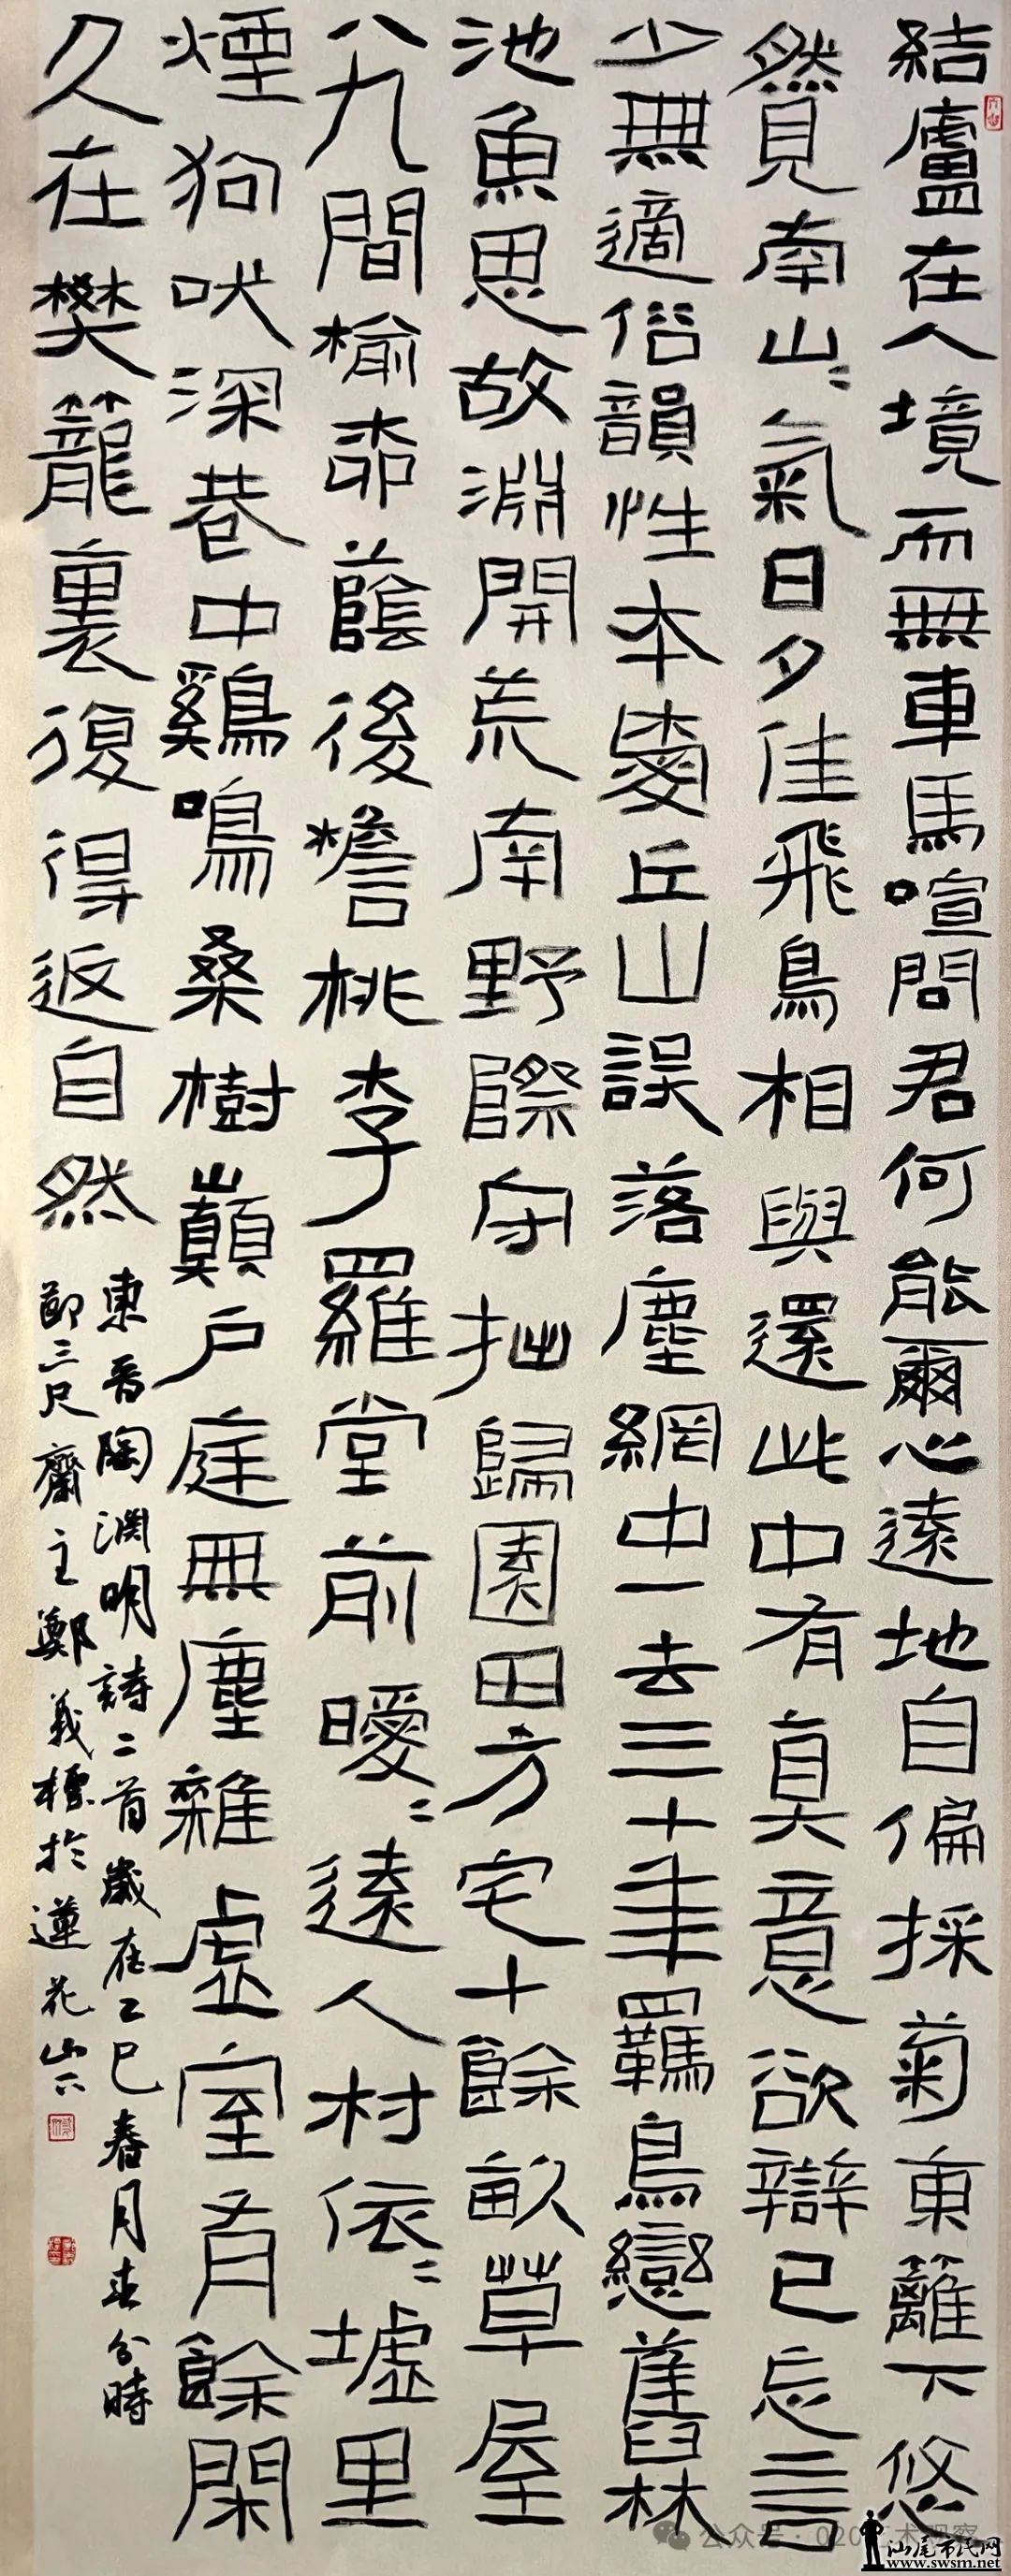 結廬在人境而無車馬喧問君何能爾心遠地自偏採菊東籬下悠
然見南山〻氣日夕佳飛鳥相與還此中有真意欲辯已忘言
少無適俗韻性本愛丘山誤落塵網中一去三十年羈鳥戀舊林
池魚思故淵開荒南野際守拙歸園田方宅十餘畝草屋
八九間榆柳蔭後檐桃李羅堂前曖〻遠人村依〻墟里
煙狗吠深巷中鷄鳴桑樹巔戶庭無塵雜虛室有餘閑
久在樊籠裏復得返自然
東晉陶淵明詩二首歲在乙巳春月春分時
節三尺齋主鄭義標於蓮花山下
公众号·020艺术观察
汕尾市民网
www.swsm.net